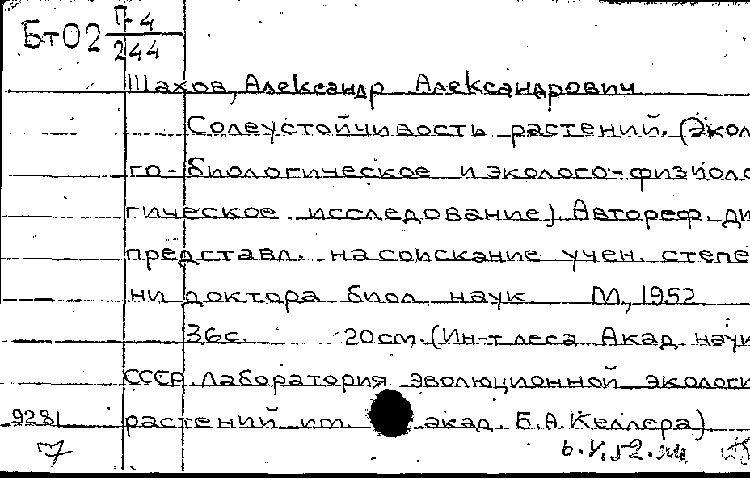 Бт02 П-4
244
Шахов, Александр Александрович
Солеустойчивость растений. (Экол
го-биологическое и эколого-физиоло
гическое исследование). Автореф. ди
представл. на соискание учен. степе
ни доктора биол наук М., 1952.
36с. 20см. (Ин-т леса Акад. наук
СССР. Лаборатория эволюционной экологи
9281 растений им. акад. Б.А. Келлера)
7 6.V.52.